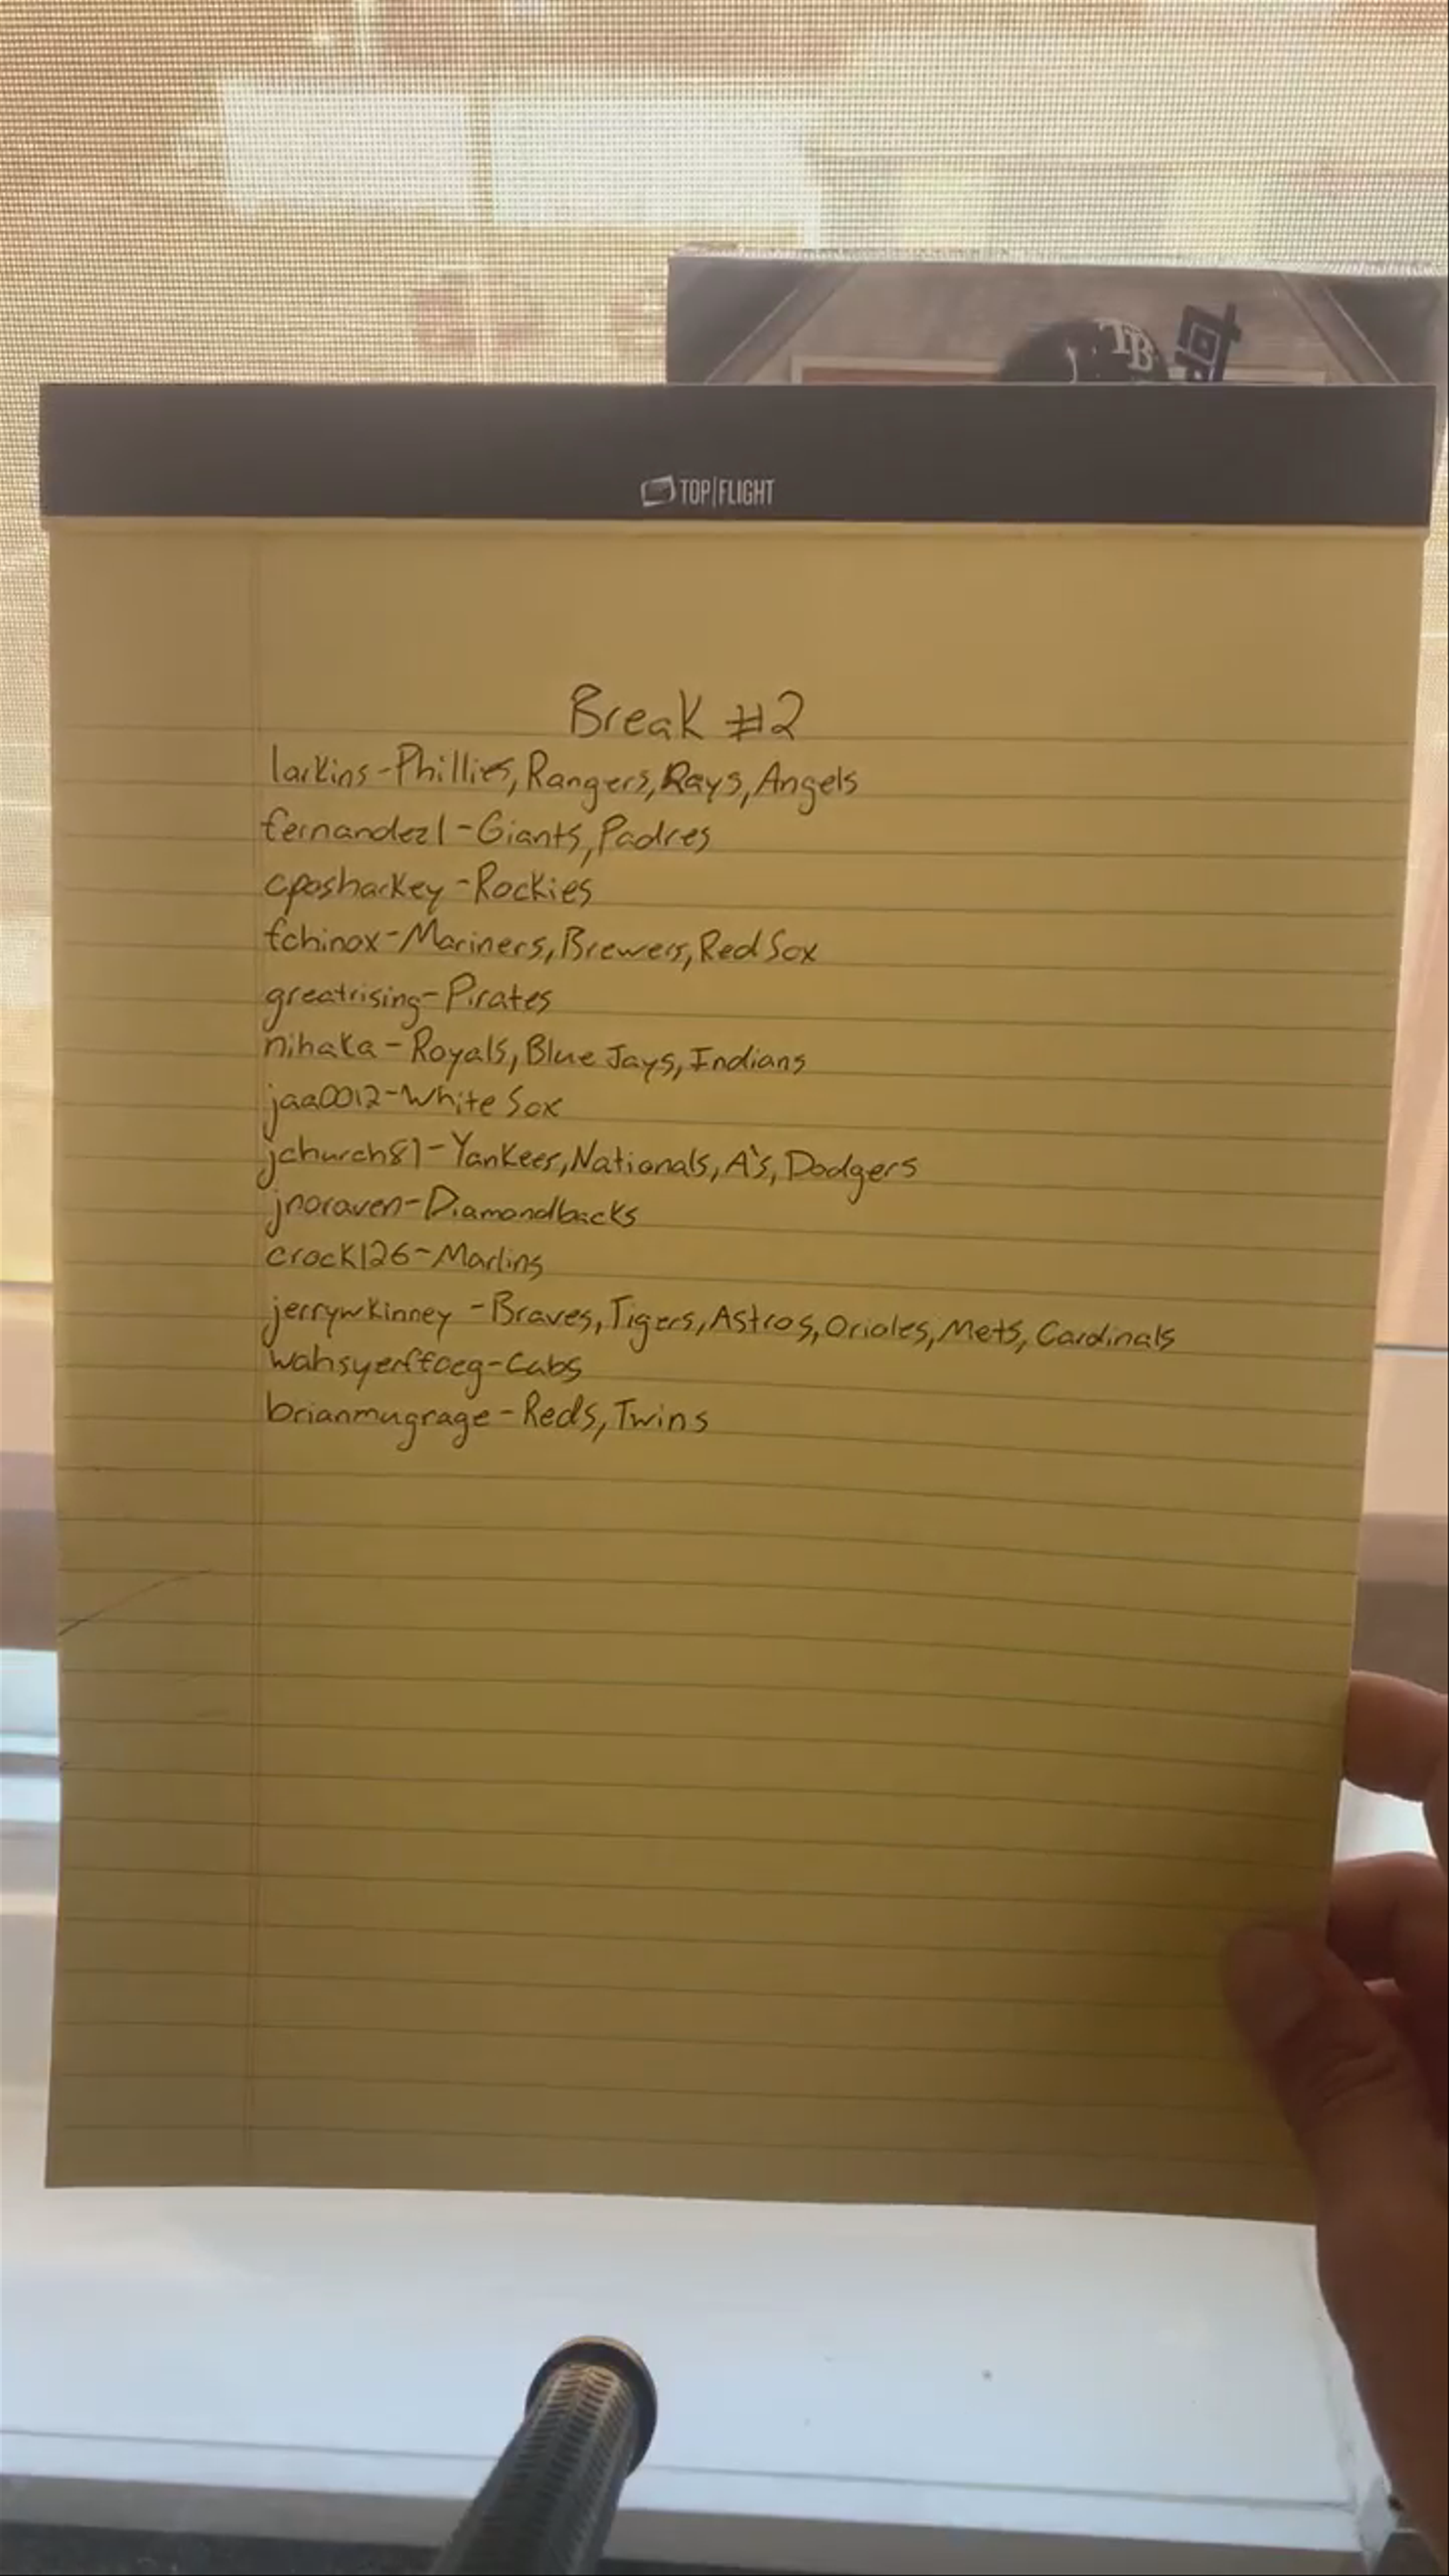 TB
TOP|FLIGHT
Break #2
larkins-Phillies, Rangers, Rays, Angels
fernandez1-Giants, Padres
cposharkey-Rockies
fchinox-Mariners, Brewers, Red Sox
greatrising-Pirates
nihaka-Royals, Blue Jays, Indians
jaa0012-White Sox
jchurch81-Yankees, Nationals, A's, Dodgers
jnoraven-Diamondbacks
crock126-Marlins
jerrywkinney-Braves, Tigers, Astros, Orioles, Mets, Cardinals
wahsyerffoeg-Cubs
brianmugrage-Reds, Twins